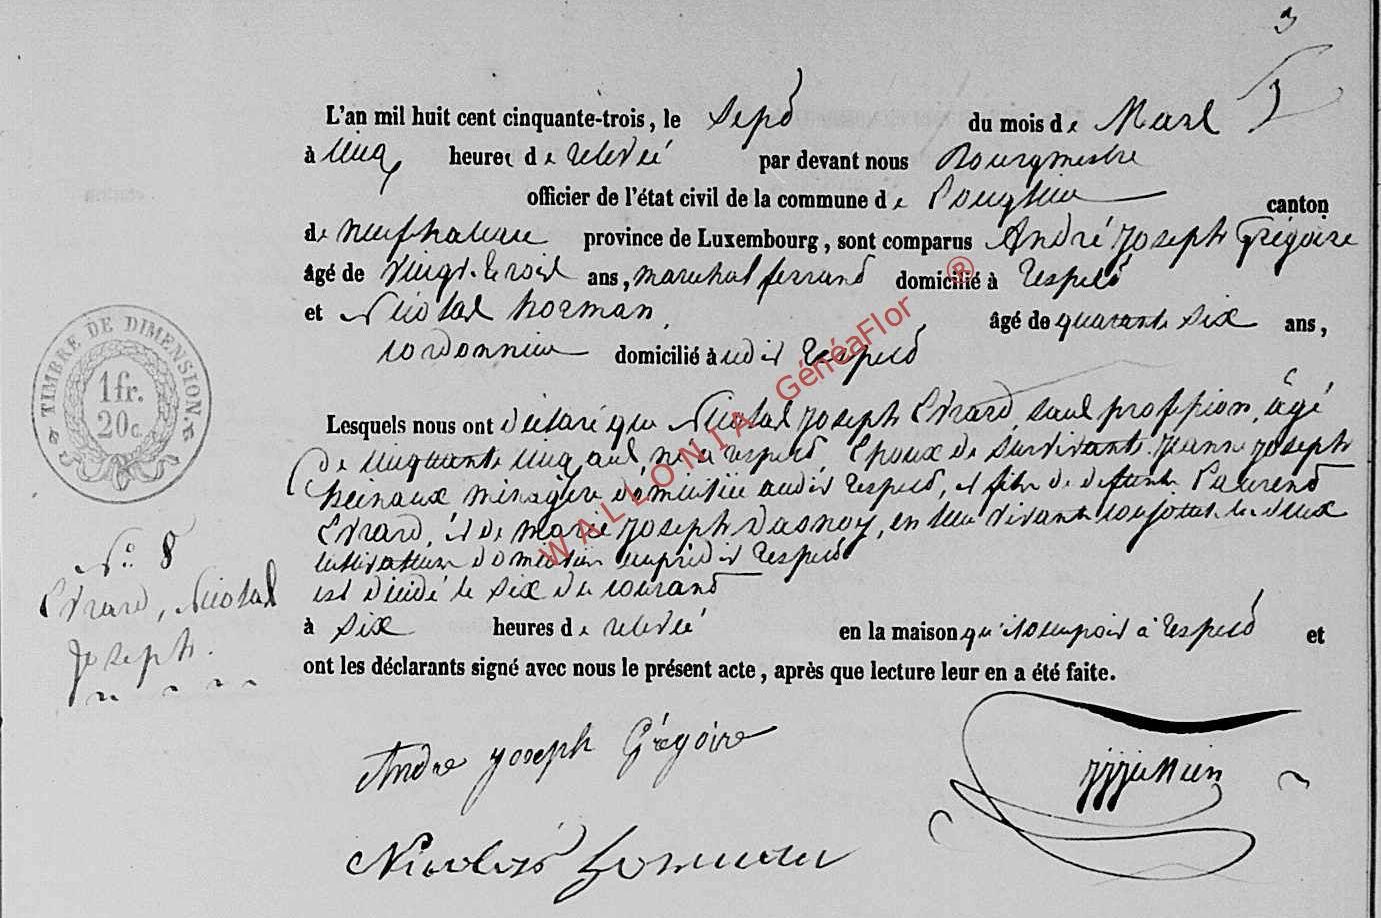 3
L'an mil huit cent cinquante-trois, le Sept du mois de Mars
à cinq heures de relevée par devant nous Bourgmestre
officier de l'état civil de la commune de Longlier canton
de neufchateau province de Luxembourg, sont comparus André Joseph Grégoire
âgé de vingt-trois ans, marechal ferrand domicilié à respelt
et Nicolas horman, âgé de quarante six ans,
cordonnier domicilié à udit respelt
Lesquels nous ont déclaré que Nicolas Joseph Evrard, sans profession, âgé
de cinquante cinq ans, né à respelt Epoux de survivante Jeanne Joseph
heinaux ménagère domiciliée audit respelt, et fils de defunts Laurend
Evrard, et de marie Joseph dasnoy, en leur vivant conjoints les deux
cultivateurs domiciliés respelt
est décédé le six du courand
à six heures de relevée en la maison qu'il occupoit à respelt et
ont les déclarants signé avec nous le présent acte, après que lecture leur en a été faite.
TIMBRE DE DIMENSION
1 fr.
20 c.
N° 8
Evrard, Nicolas
Joseph.
WALLONIA GénéaFlor ®
Andre Joseph Grégoire
Nicolas